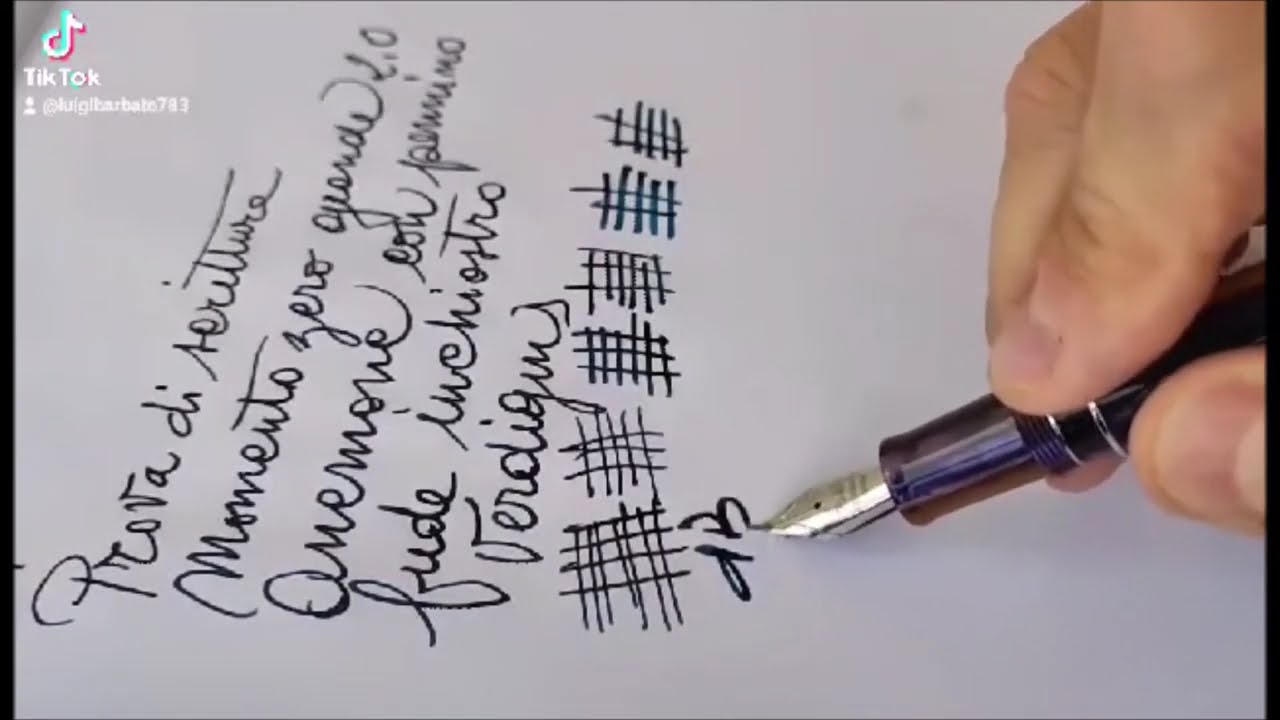 TikTok
@luigibarbato783
Prova di scrittura
Momento zero grande 2.0
Anemone con pennino
fude inchiostro
Verdigris
AB